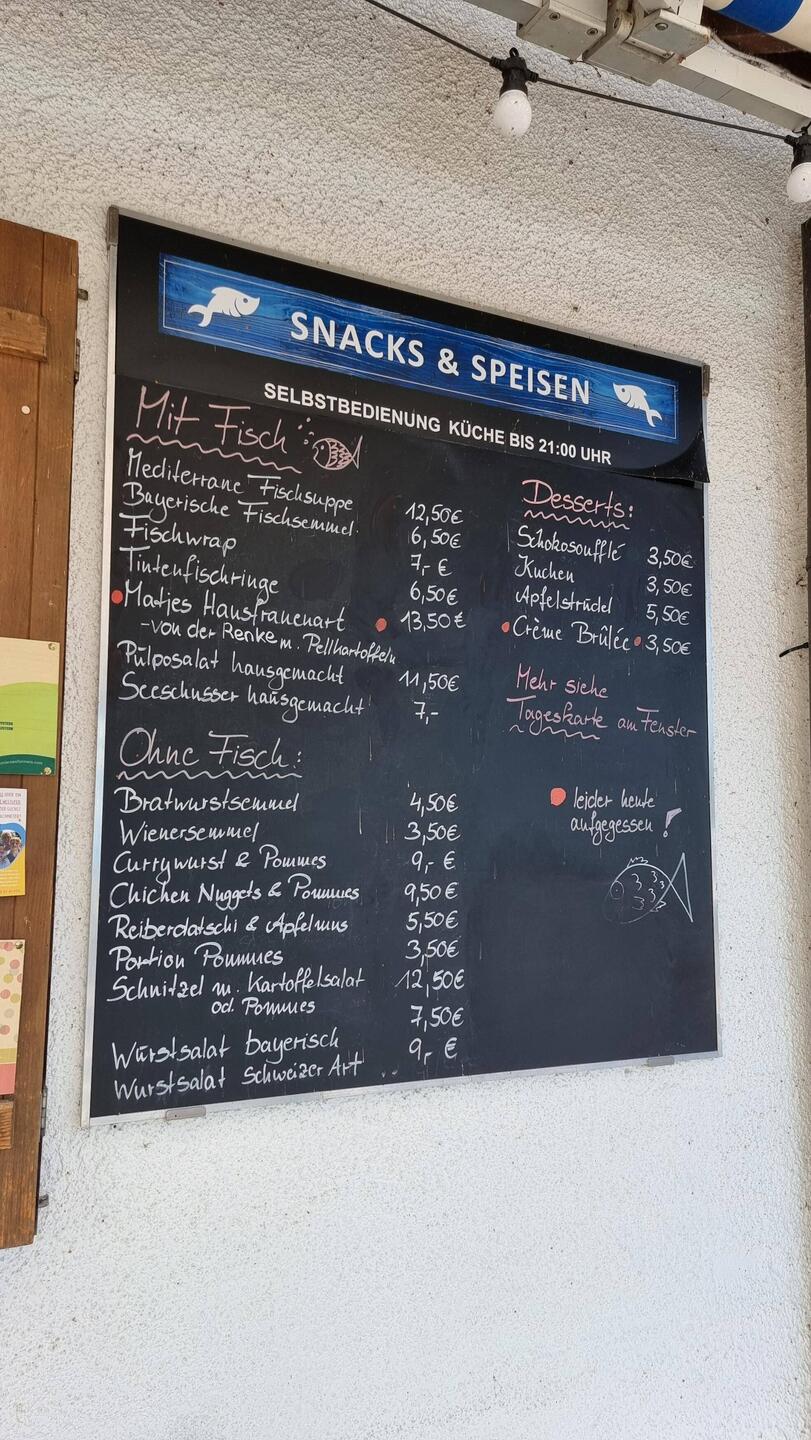 SNACKS & SPEISEN
SELBSTBEDIENUNG KÜCHE BIS 21:00 UHR
Mit Fisch
Mediterrane Fischsuppe 12,50€
Bayerische Fischsemmel 6,50€
Fischwrap 7,- €
Tintenfischringe 6,50€
Matjes Hausfrauenart 13,50€
-von der Renke m. Pellkartoffeln
Pulposalat hausgemacht 11,50€
Seeschusser hausgemacht 7,-
Ohne Fisch:
Bratwurstsemmel 4,50€
Wienersemmel 3,50€
Currywurst & Pommes 9,- €
Chicken Nuggets & Pommes 9,50€
Reiberdatschi & Apfelmus 5,50€
Portion Pommes 3,50€
Schnitzel m. Kartoffelsalat 12,50€
od. Pommes
Wurstsalat bayerisch 7,50€
Wurstsalat Schweizer Art 9,- €
Desserts:
Schokosoufflé 3,50€
Kuchen 3,50€
Apfelstrudel 5,50€
Crème Brûlée 3,50€
Mehr siehe
Tageskarte am Fenster
leider heute
aufgegessen!